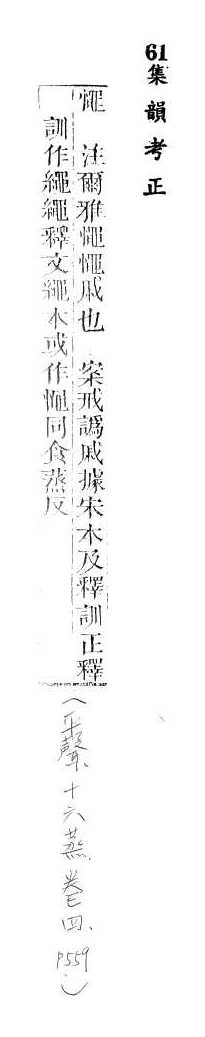 61集韻考正
憴 注爾雅憴憴戒也 案戒譌戚據宋本及釋訓正釋
訓作繩繩釋文繩本或作憴同食蒸反
(平聲、十六蒸、卷四、P559)